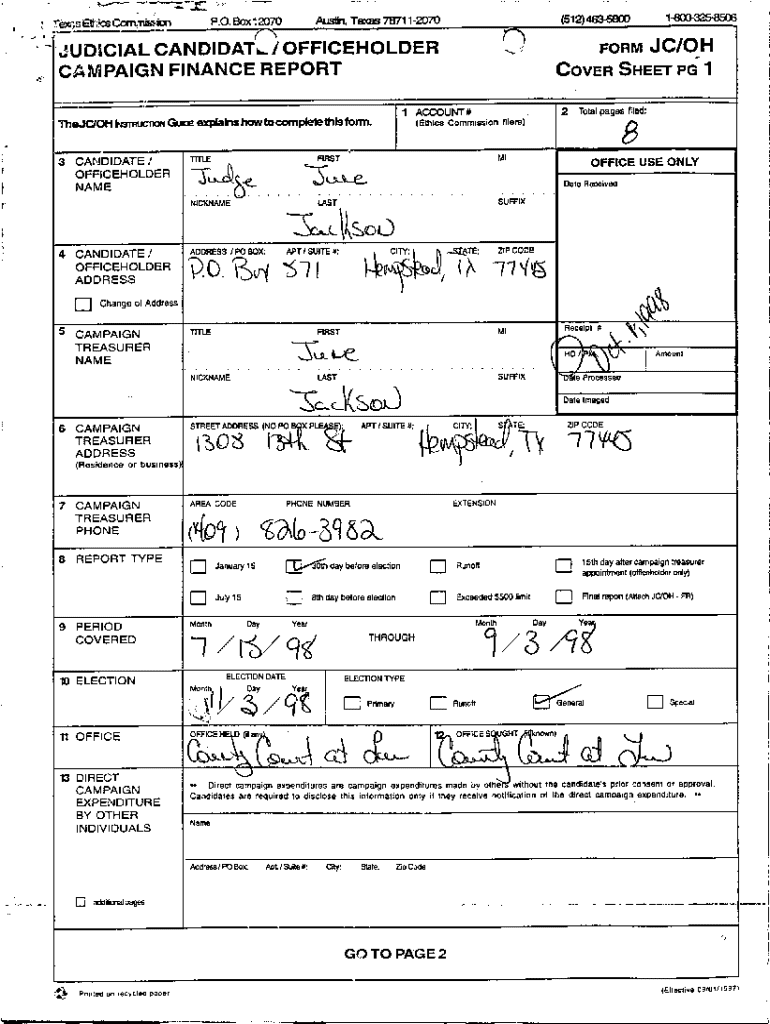 Texas Ethics Commission P.O. Box 12070 Austin, Texas 78711-2070 (512) 463-5800 1-800-325-8506
JUDICIAL CANDIDATE / OFFICEHOLDER
CAMPAIGN FINANCE REPORT
FORM JC/OH
COVER SHEET PG 1
The JC/OH INSTRUCTION GUIDE explains how to complete this form.
1 ACCOUNT #
(Ethics Commission filers)
2 Total pages filed:
8
3 CANDIDATE /
OFFICEHOLDER
NAME
TITLE FIRST MI
Judge June
NICKNAME LAST SUFFIX
Jackson
OFFICE USE ONLY
Date Received
4 CANDIDATE /
OFFICEHOLDER
ADDRESS
Change of Address
ADDRESS / PO BOX; APT / SUITE #; CITY; STATE; ZIP CODE
P.O. Box 571 Hempstead, TX 77445
Oct. 1, 1998
Receipt #
HD / PM Amount
Date Processed
Date Imaged
5 CAMPAIGN
TREASURER
NAME
TITLE FIRST MI
June
NICKNAME LAST SUFFIX
Jackson
6 CAMPAIGN
TREASURER
ADDRESS
(Residence or business)
STREET ADDRESS (NO PO BOX PLEASE); APT / SUITE #; CITY; STATE; ZIP CODE
1308 13th St Hempstead, TX 77445
7 CAMPAIGN
TREASURER
PHONE
AREA CODE PHONE NUMBER EXTENSION
(409) 826-3982
8 REPORT TYPE
January 15 30th day before election Runoff 15th day after campaign treasurer
appointment (officeholder only)
July 15 8th day before election Exceeded $500 limit Final report (Attach JC/OH - FR)
9 PERIOD
COVERED
Month Day Year Month Day Year
7 / 15 / 98 THROUGH 9 / 3 / 98
10 ELECTION
ELECTION DATE ELECTION TYPE
Month Day Year
11 / 3 / 98 Primary Runoff General Special
11 OFFICE
OFFICE HELD (if any) 12 OFFICE SOUGHT (if known)
County Court at Law County Court at Law
13 DIRECT
CAMPAIGN
EXPENDITURE
BY OTHER
INDIVIDUALS
additional pages
** Direct campaign expenditures are campaign expenditures made by others without the candidate's prior consent or approval.
Candidates are required to disclose this information only if they receive notification of the direct campaign expenditure. **
Name
Address / PO Box; Apt. / Suite #; City; State; Zip Code
GO TO PAGE 2
Printed on recycled paper
(Effective 09/01/1997)